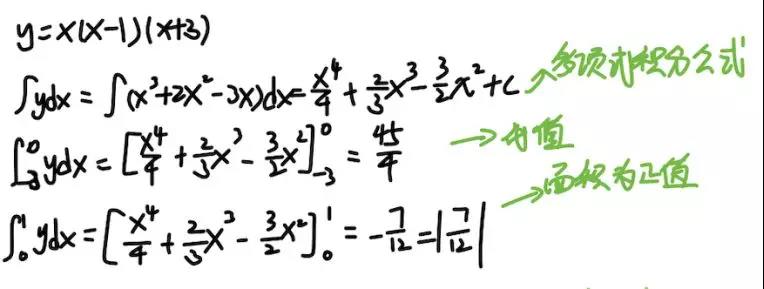 y=x(x-1)(x+3)
∫ydx = ∫(x³+2x²-3x)dx = x⁴/4 + 2/3x³ - 3/2x² + c → 多项式积分公式
∫₋₃⁰ydx = [x⁴/4 + 2/3x³ - 3/2x²]₋₃⁰ = 45/4 → 求值
∫₀¹ydx = [x⁴/4 + 2/3x³ - 3/2x²]₀¹ = -7/12 = |7/12| → 面积为正值